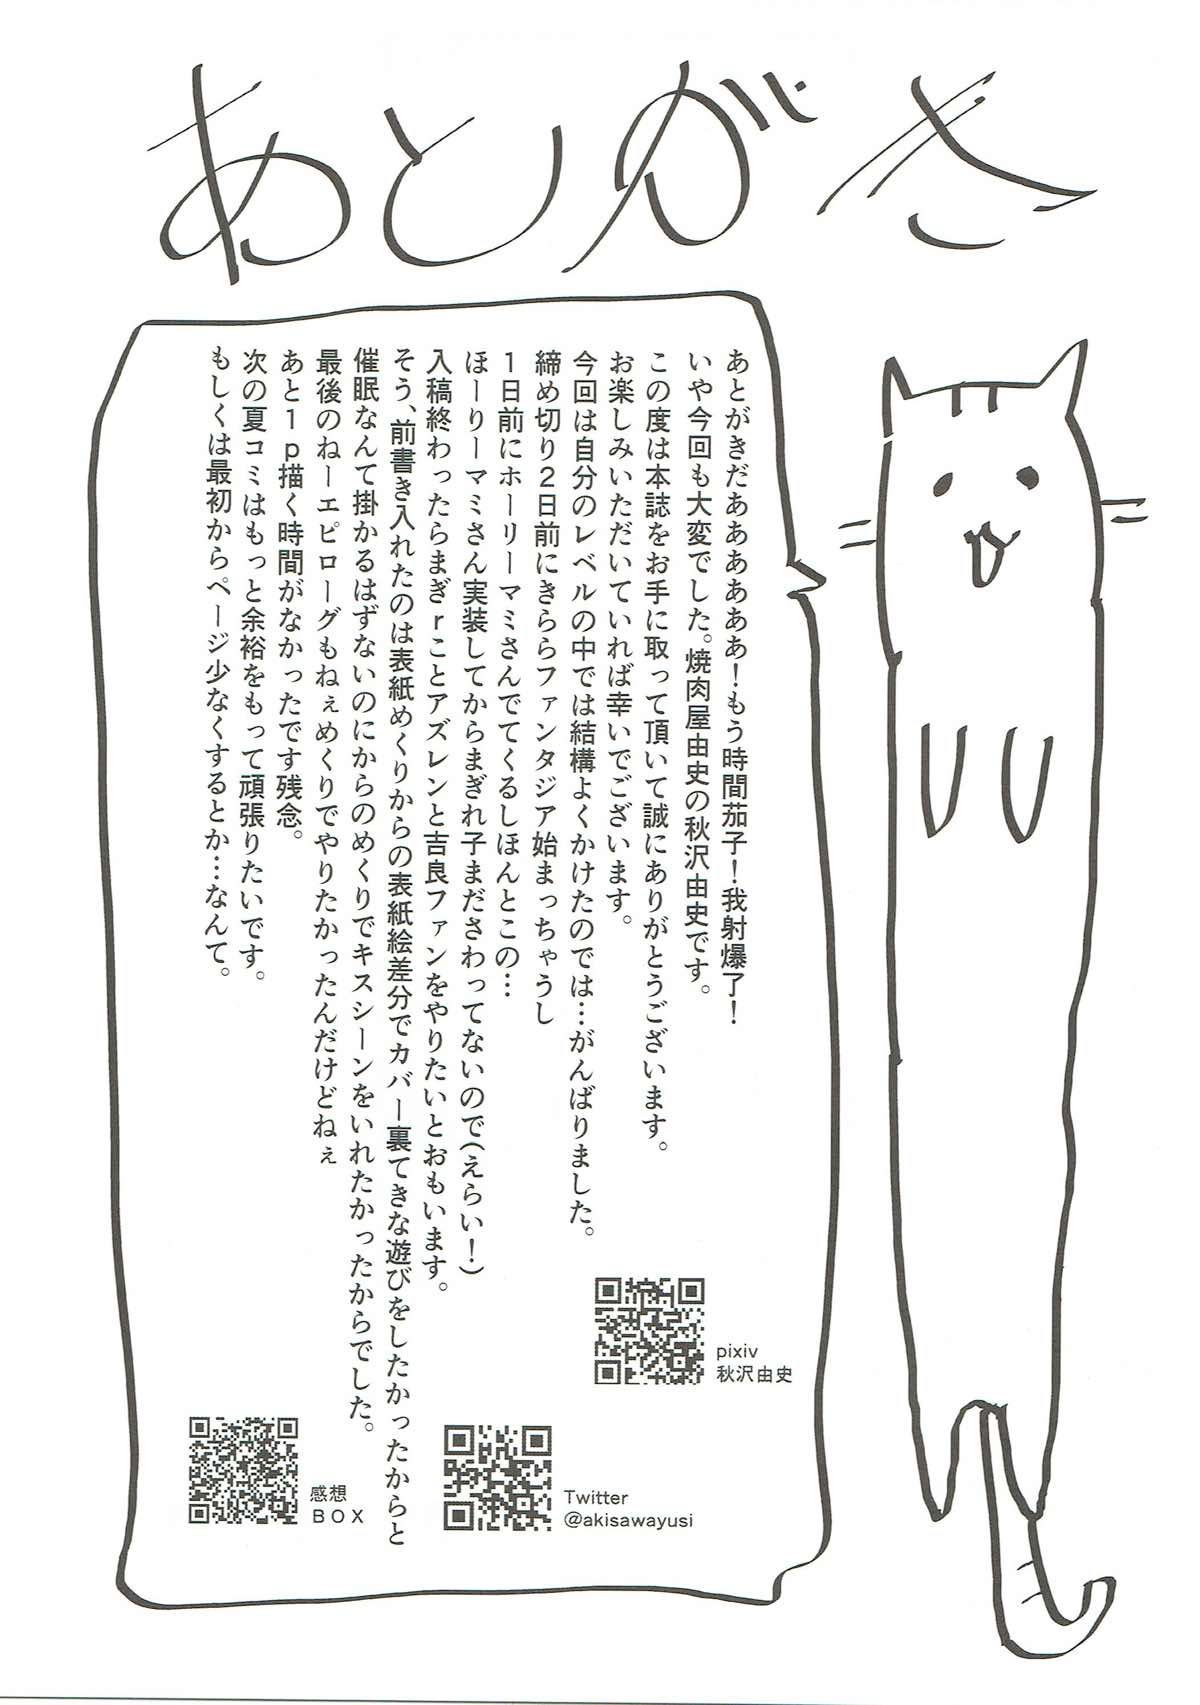 あとがき
あとがきだあああああ！もう時間茄子！我射爆了！
いや今回も大変でした。焼肉屋由史の秋沢由史です。
この度は本誌をお手に取って頂いて誠にありがとうございます。
お楽しみいただいていれば幸いでございます。
今回は自分のレベルの中では結構よくかけたのでは…がんばりました。
締め切り２日前にきららファンタジア始まっちゃうし
１日前にホーリーマミさんでてくるしほんとこの…
ほーりーマミさん実装してからまぎれ子まださわってないので（えらい！）
入稿終わったらまぎｒことアズレンと吉良ファンをやりたいとおもいます。
そう、前書き入れたのは表紙めくりからの表紙絵差分でカバー裏てきな遊びをしたかったからと
催眠なんて掛かるはずないのにからのめくりでキスシーンをいれたかったからでした。
最後のねーエピローグもねぇめくりでやりたかったんだけどねぇ
あと１ｐ描く時間がなかったです残念。
次の夏コミはもっと余裕をもって頑張りたいです。
もしくは最初からページ少なくするとか…なんて。
pixiv
秋沢由史
Twitter
@akisawayusi
感想
ＢＯＸ